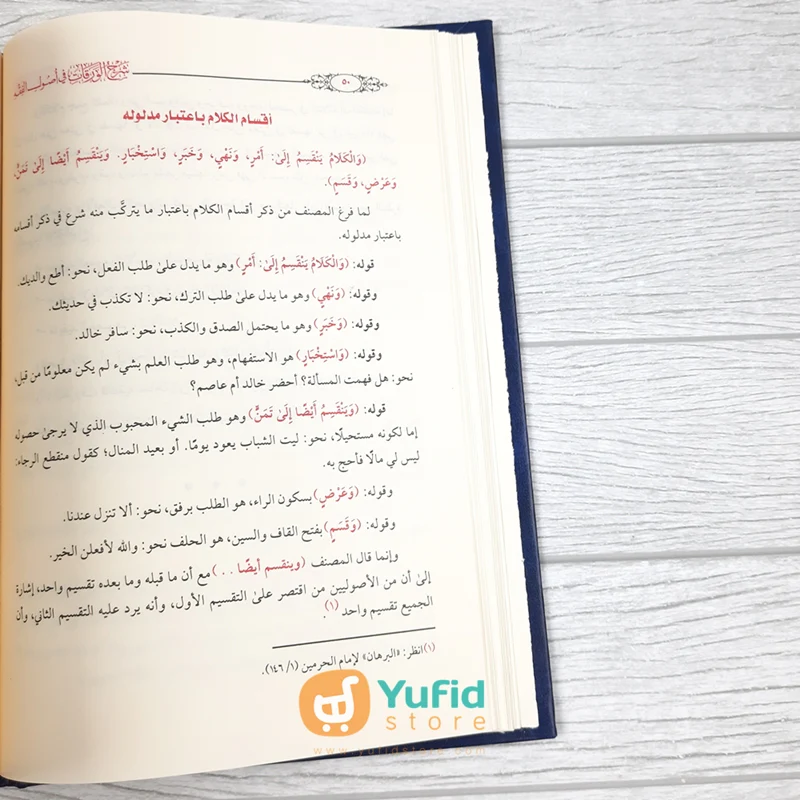 شرح الورقات في أصول الفقه
٥٠
أقسام الكلام باعتبار مدلوله
(وَالْكَلَامُ يَنْقَسِمُ إِلَىٰ: أَمْرٍ، وَنَهْيٍ، وَخَبَرٍ، وَاسْتِخْبَارٍ. وَيَنْقَسِمُ أَيْضًا إِلَىٰ تَمَنٍّ،
وَعَرْضٍ، وَقَسَمٍ).
لما فرغ المصنف من ذكر أقسام الكلام باعتبار ما يتركَّب منه شرع في ذكر أقسامه
باعتبار مدلوله.
قوله: (وَالْكَلَامُ يَنْقَسِمُ إِلَىٰ: أَمْرٍ) وهو ما يدل علىٰ طلب الفعل، نحو: أطع والديك.
وقوله: (وَنَهْيٍ) وهو ما يدل علىٰ طلب الترك، نحو: لا تكذب في حديثك.
وقوله: (وَخَبَرٍ) وهو ما يحتمل الصدق والكذب، نحو: سافر خالد.
وقوله: (وَاسْتِخْبَارٍ) هو الاستفهام، وهو طلب العلم بشيء لم يكن معلومًا من قبل،
نحو: هل فهمت المسألة؟ أحضر خالد أم عاصم؟
قوله: (وَيَنْقَسِمُ أَيْضًا إِلَىٰ تَمَنٍّ) وهو طلب الشيء المحبوب الذي لا يرجىٰ حصوله
إما لكونه مستحيلًا، نحو: ليت الشباب يعود يومًا. أو بعيد المنال؛ كقول منقطع الرجاء:
ليس لي مالًا فأحج به.
وقوله: (وَعَرْضٍ) بسكون الراء، هو الطلب برفق، نحو: ألا تنزل عندنا.
وقوله: (وَقَسَمٍ) بفتح القاف والسين، هو الحلف نحو: والله لأفعلن الخير.
وإنما قال المصنف (وينقسم أيضًا . . ) مع أن ما قبله وما بعده تقسيم واحد، إشارة
إلىٰ أن من الأصوليين من اقتصر علىٰ التقسيم الأول، وأنه يرد عليه التقسيم الثاني، وأن
الجميع تقسيم واحد (١).
(١) انظر: «البرهان» لإمام الحرمين (١/ ١٤٦).
Yufid
store
www.yufidstore.com